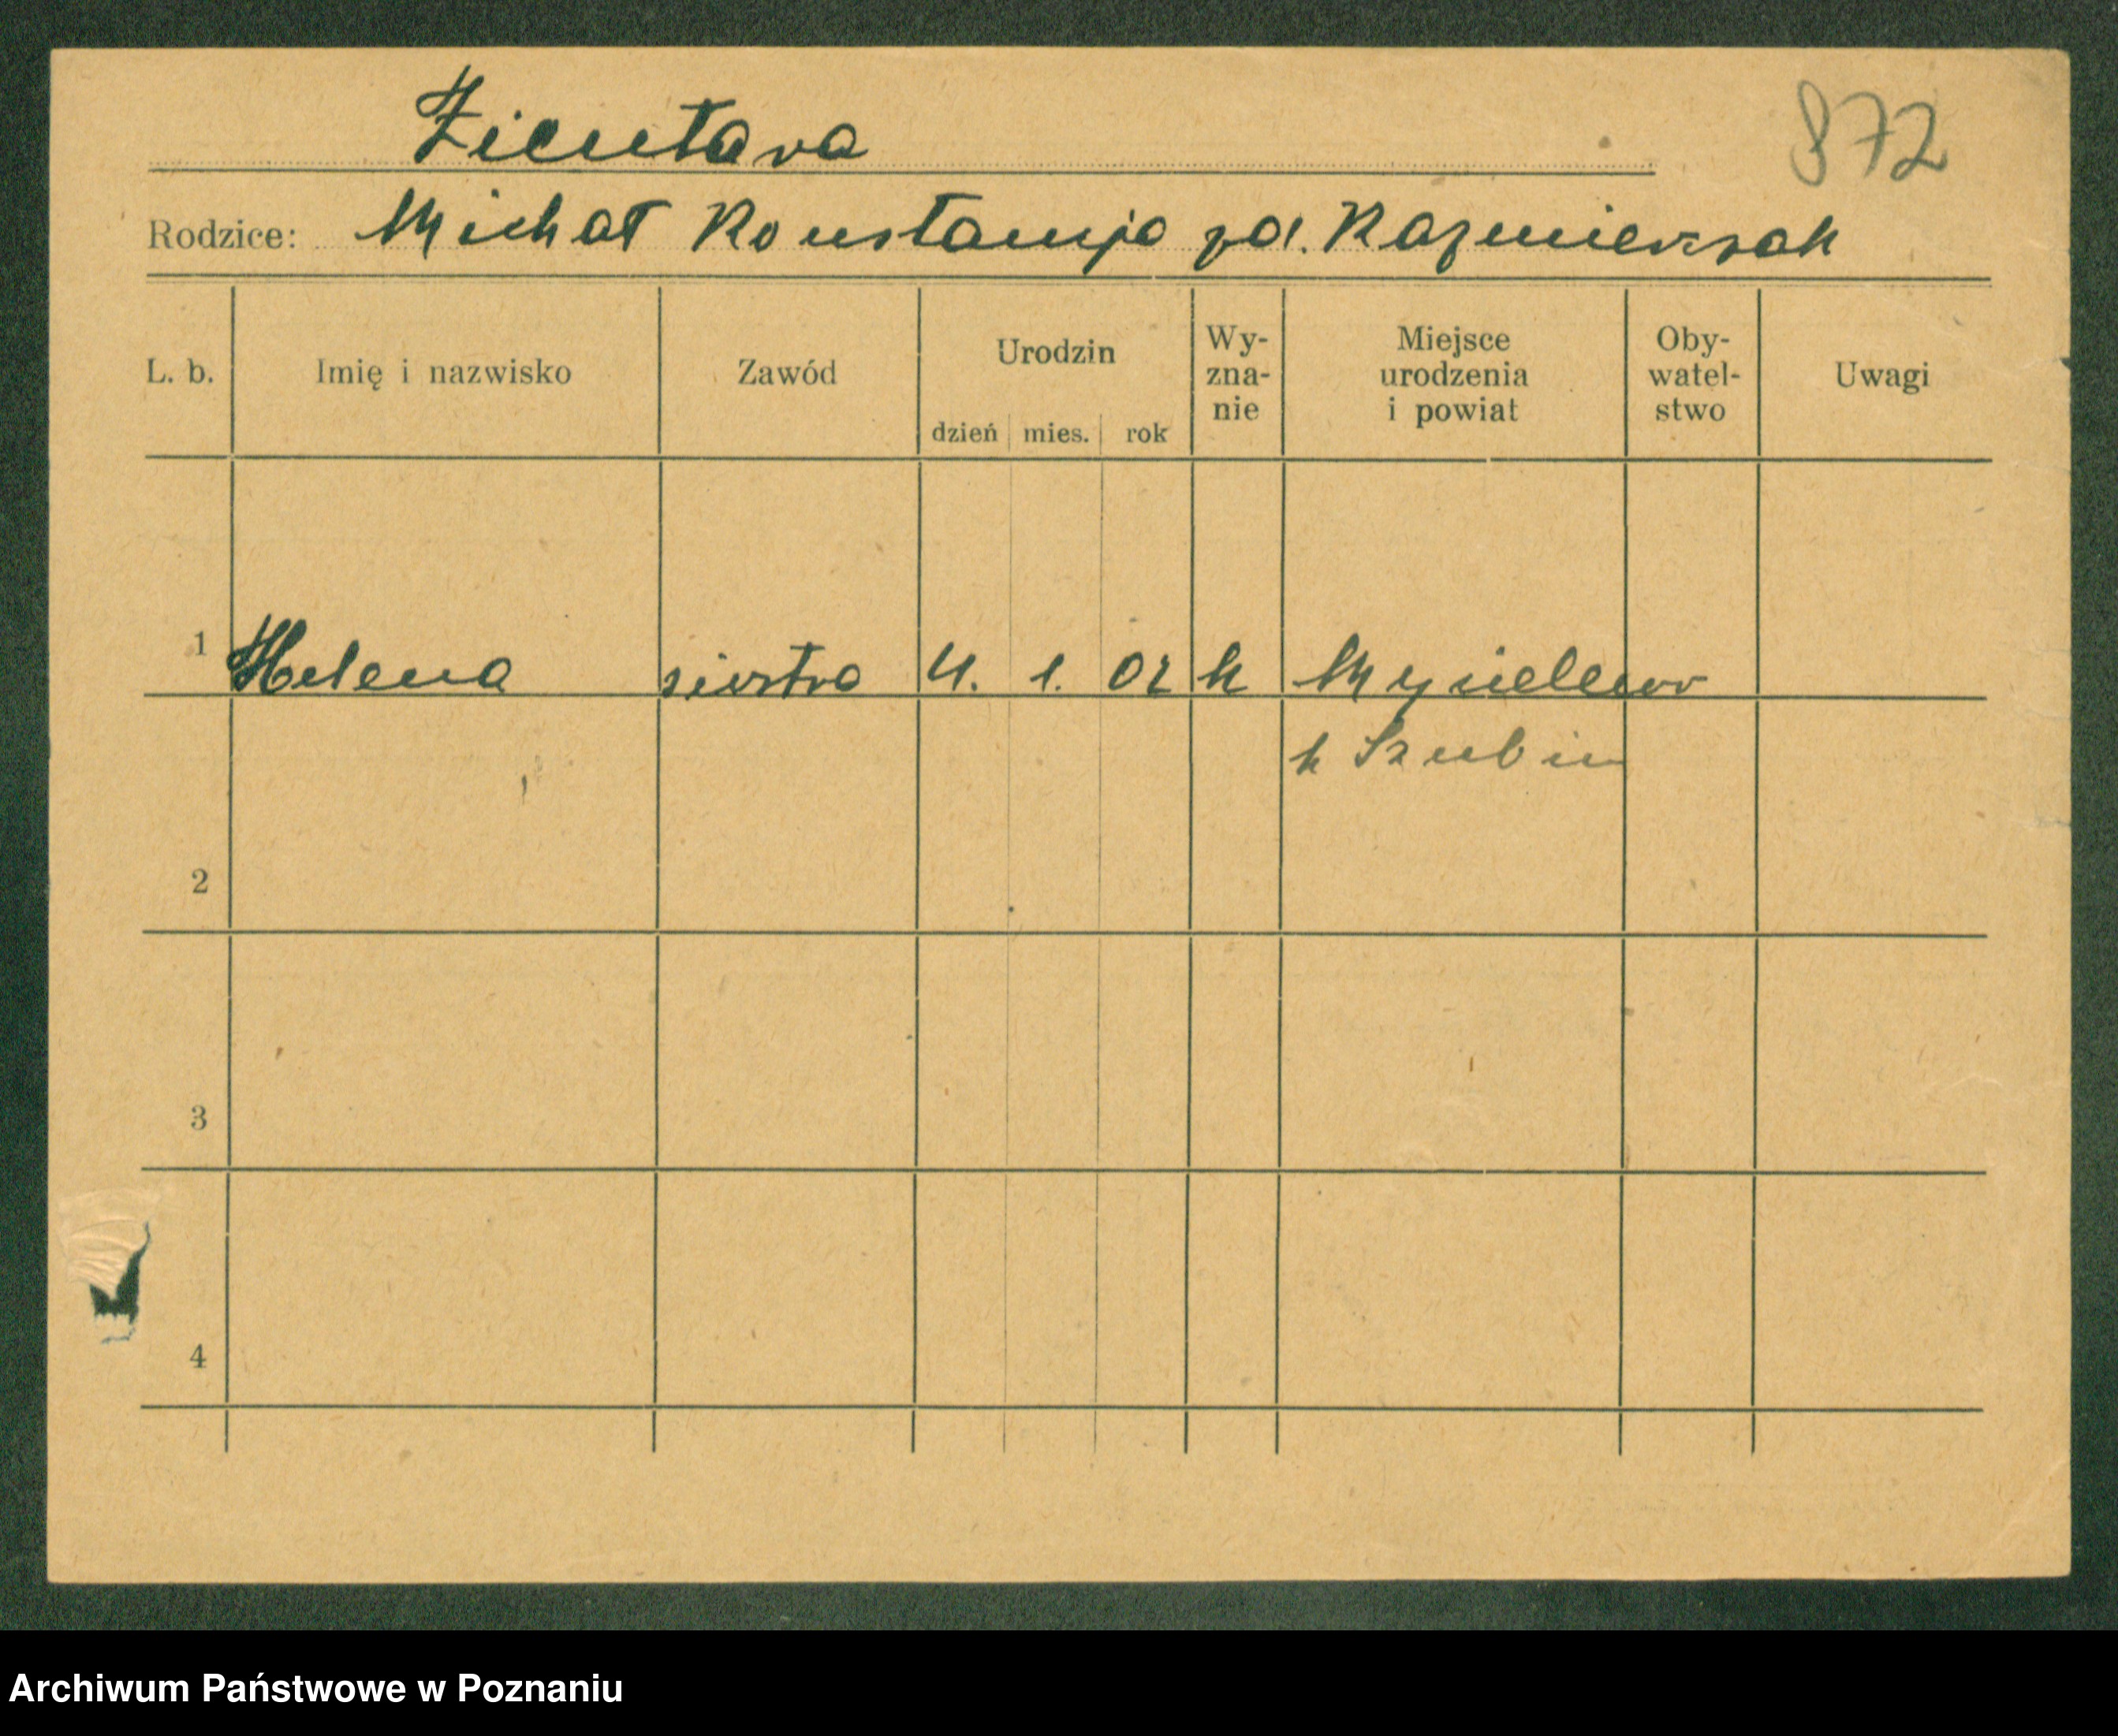 Zientara
872
Rodzice: Michał Konstancja zd. Kazmierzak
L. b. Imię i nazwisko Zawód Urodzin dzień mies. rok Wy-zna-nie Miejsce urodzenia i powiat Oby-watel-stwo Uwagi
1 Helena siostra 4. 1. 02 k
k Szubin
2
3
4
Archiwum Państwowe w Poznaniu